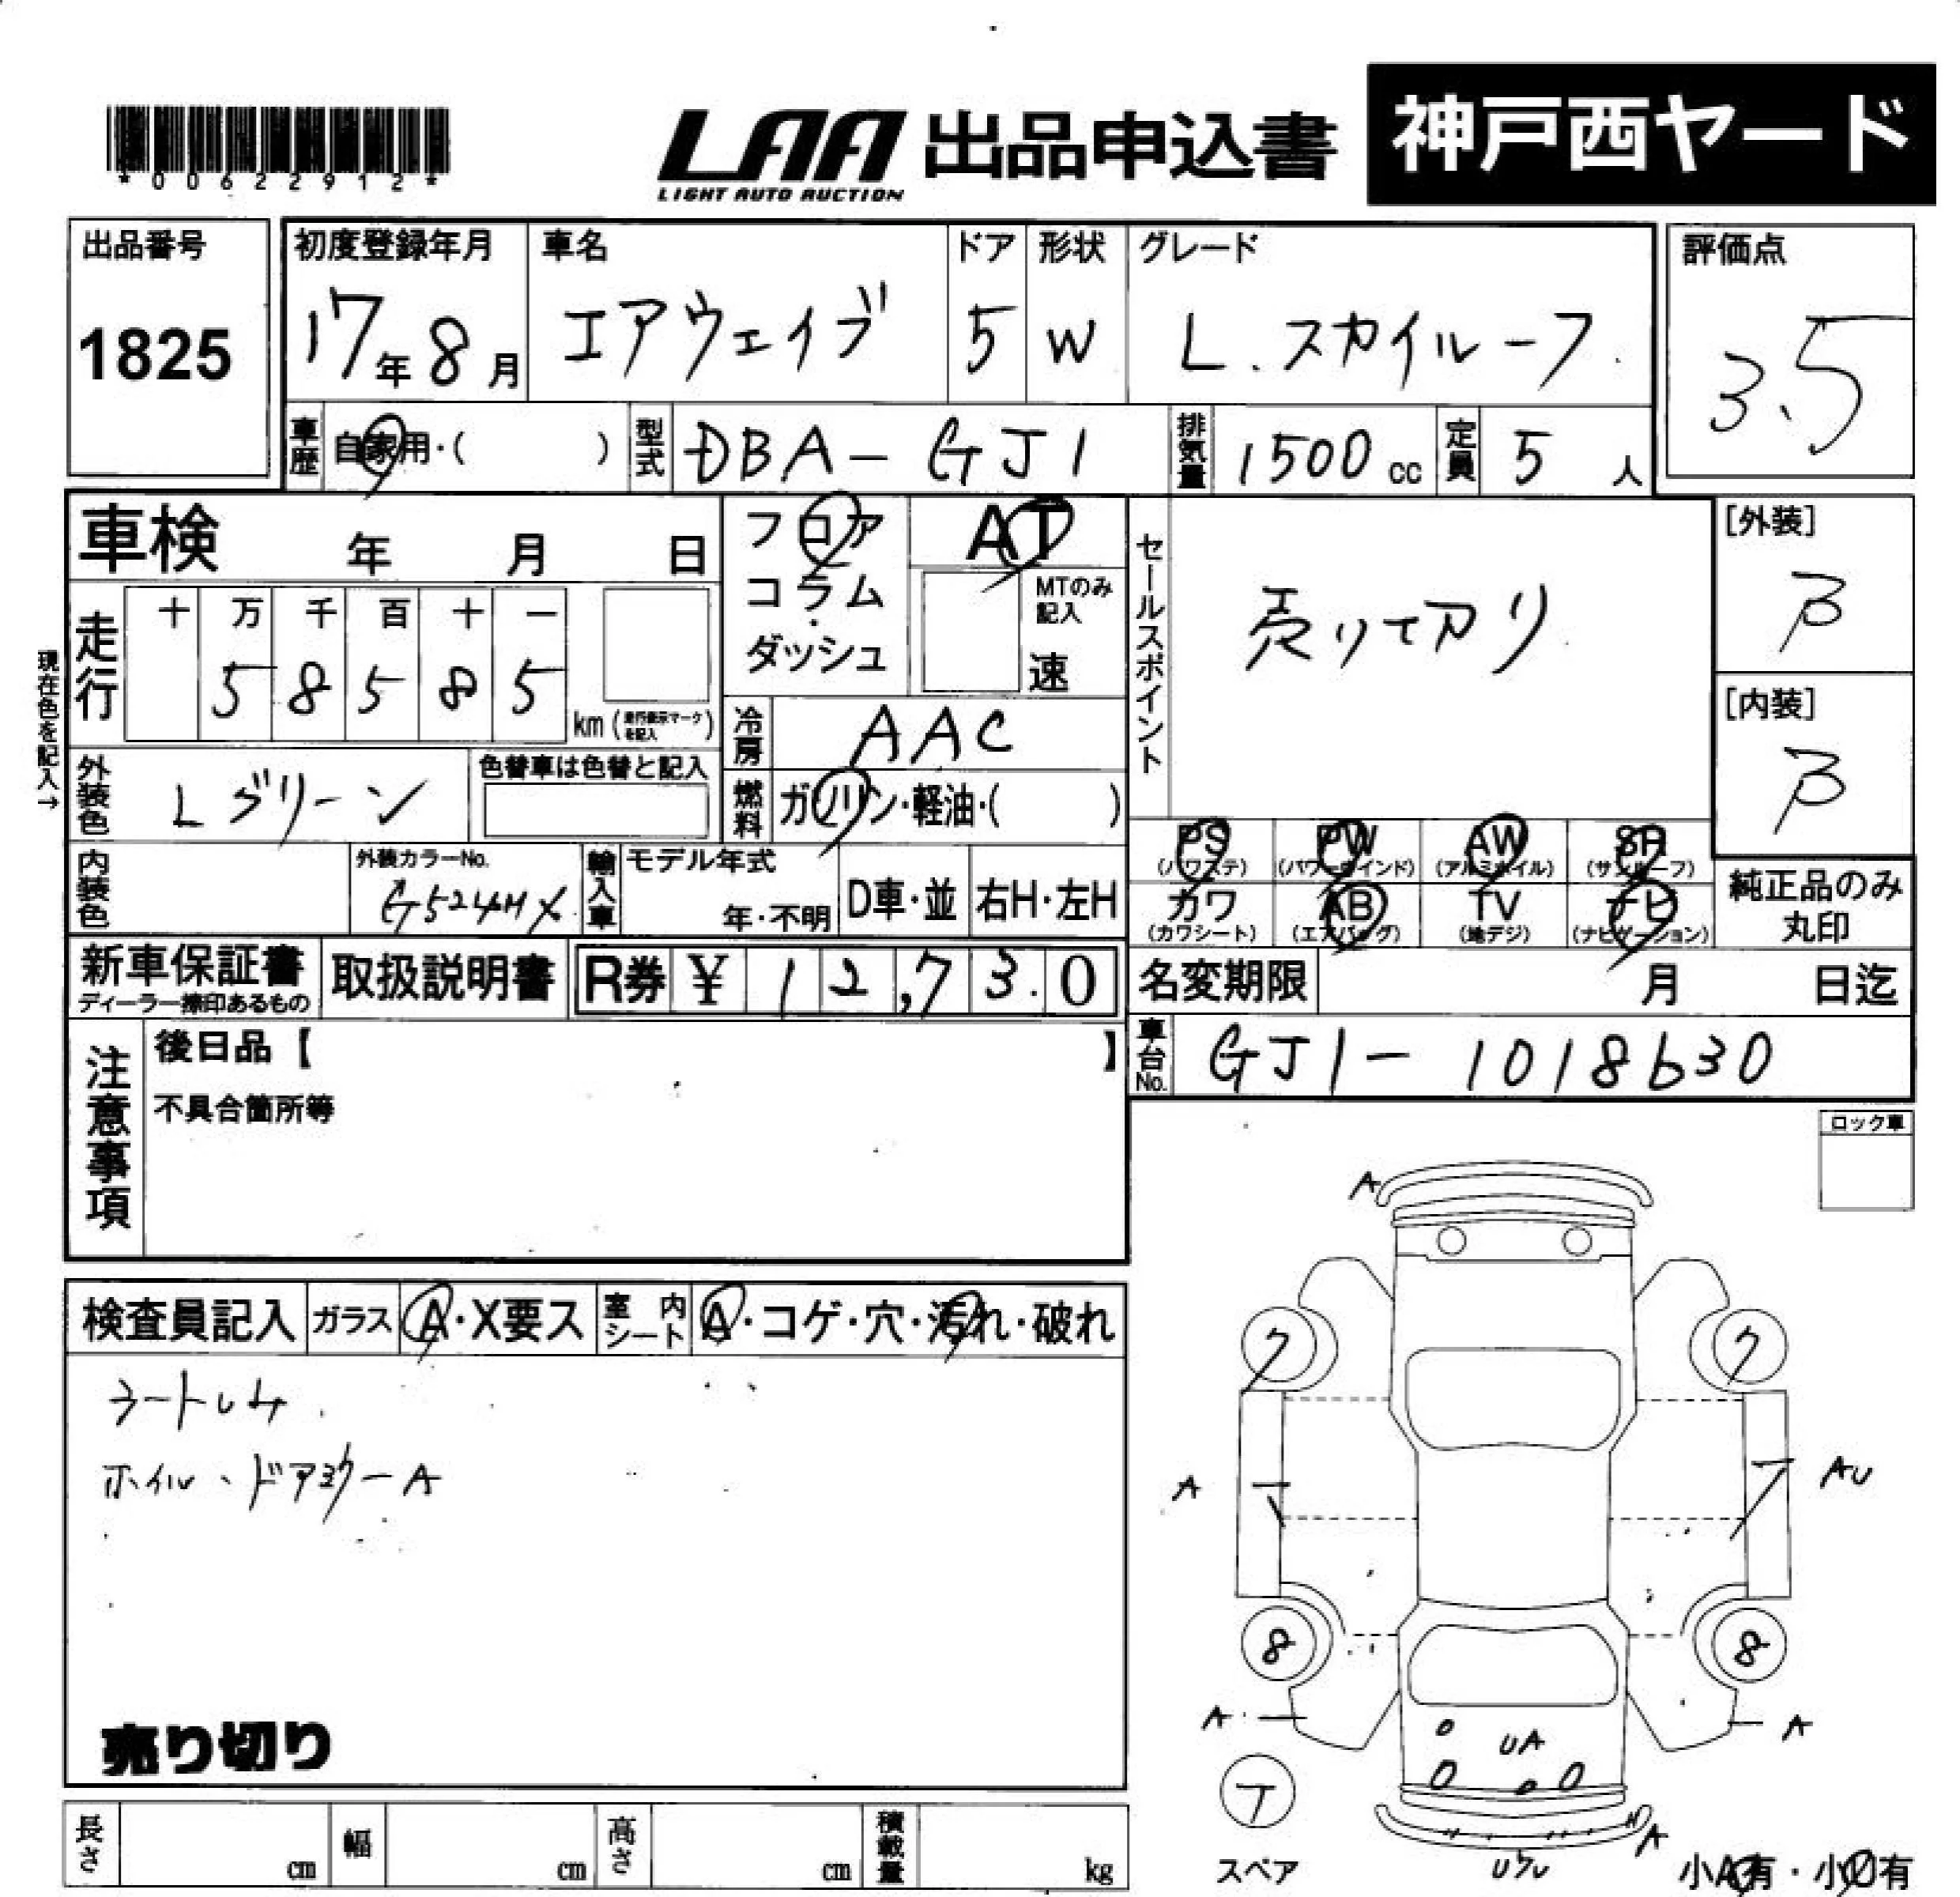 *00622912*
LAA 出品申込書 神戸西ヤード
LIGHT AUTO AUCTION
出品番号 初度登録年月 車名 ドア 形状 グレード 評価点
1825 17年8月 エアウェイブ 5 W L.スカイルーフ 3.5
車歴 自家用・( ) 型式 DBA-GJ1 排気量 1500cc 定員 5人
車検 年 月 日 フロア AT セールスポイント [外装]
コラム MTのみ記入 B
走行 十 万 千 百 十 一 ダッシュ 速 売りてアリ
5 8 5 8 5 km(走行表示マークを記入) [内装]
現在色を記入→
冷房 AAC B
外装色 Lグリーン 色替車は色替と記入 燃料 ガソリン・軽油・( )
PS PW AW SR
(パワステ) (パワーウインド) (アルミホイル) (サンルーフ)
内装色 外装カラーNo. G524MX 輸入車 モデル年式 年・不明 D車・並 右H・左H 純正品のみ
カワ AB TV ナビ 丸印
(カワシート) (エアバッグ) (地デジ) (ナビゲーション)
新車保証書 取扱説明書 R券 ¥ 12,730 名変期限 月 日迄
ディーラー捺印あるもの
注意事項 後日品【 】 車台No. GJ1-1018630
不具合箇所等 ロック車
A
検査員記入 ガラス A・X要ス 室内シート A・コゲ・穴・汚れ・破れ
7 7
ホイル、ドアミラーA
A AU
8 8
A A
売り切り UA
T
A
長さ cm 幅 cm 高さ cm 積載量 kg スペア 小A有・小U有